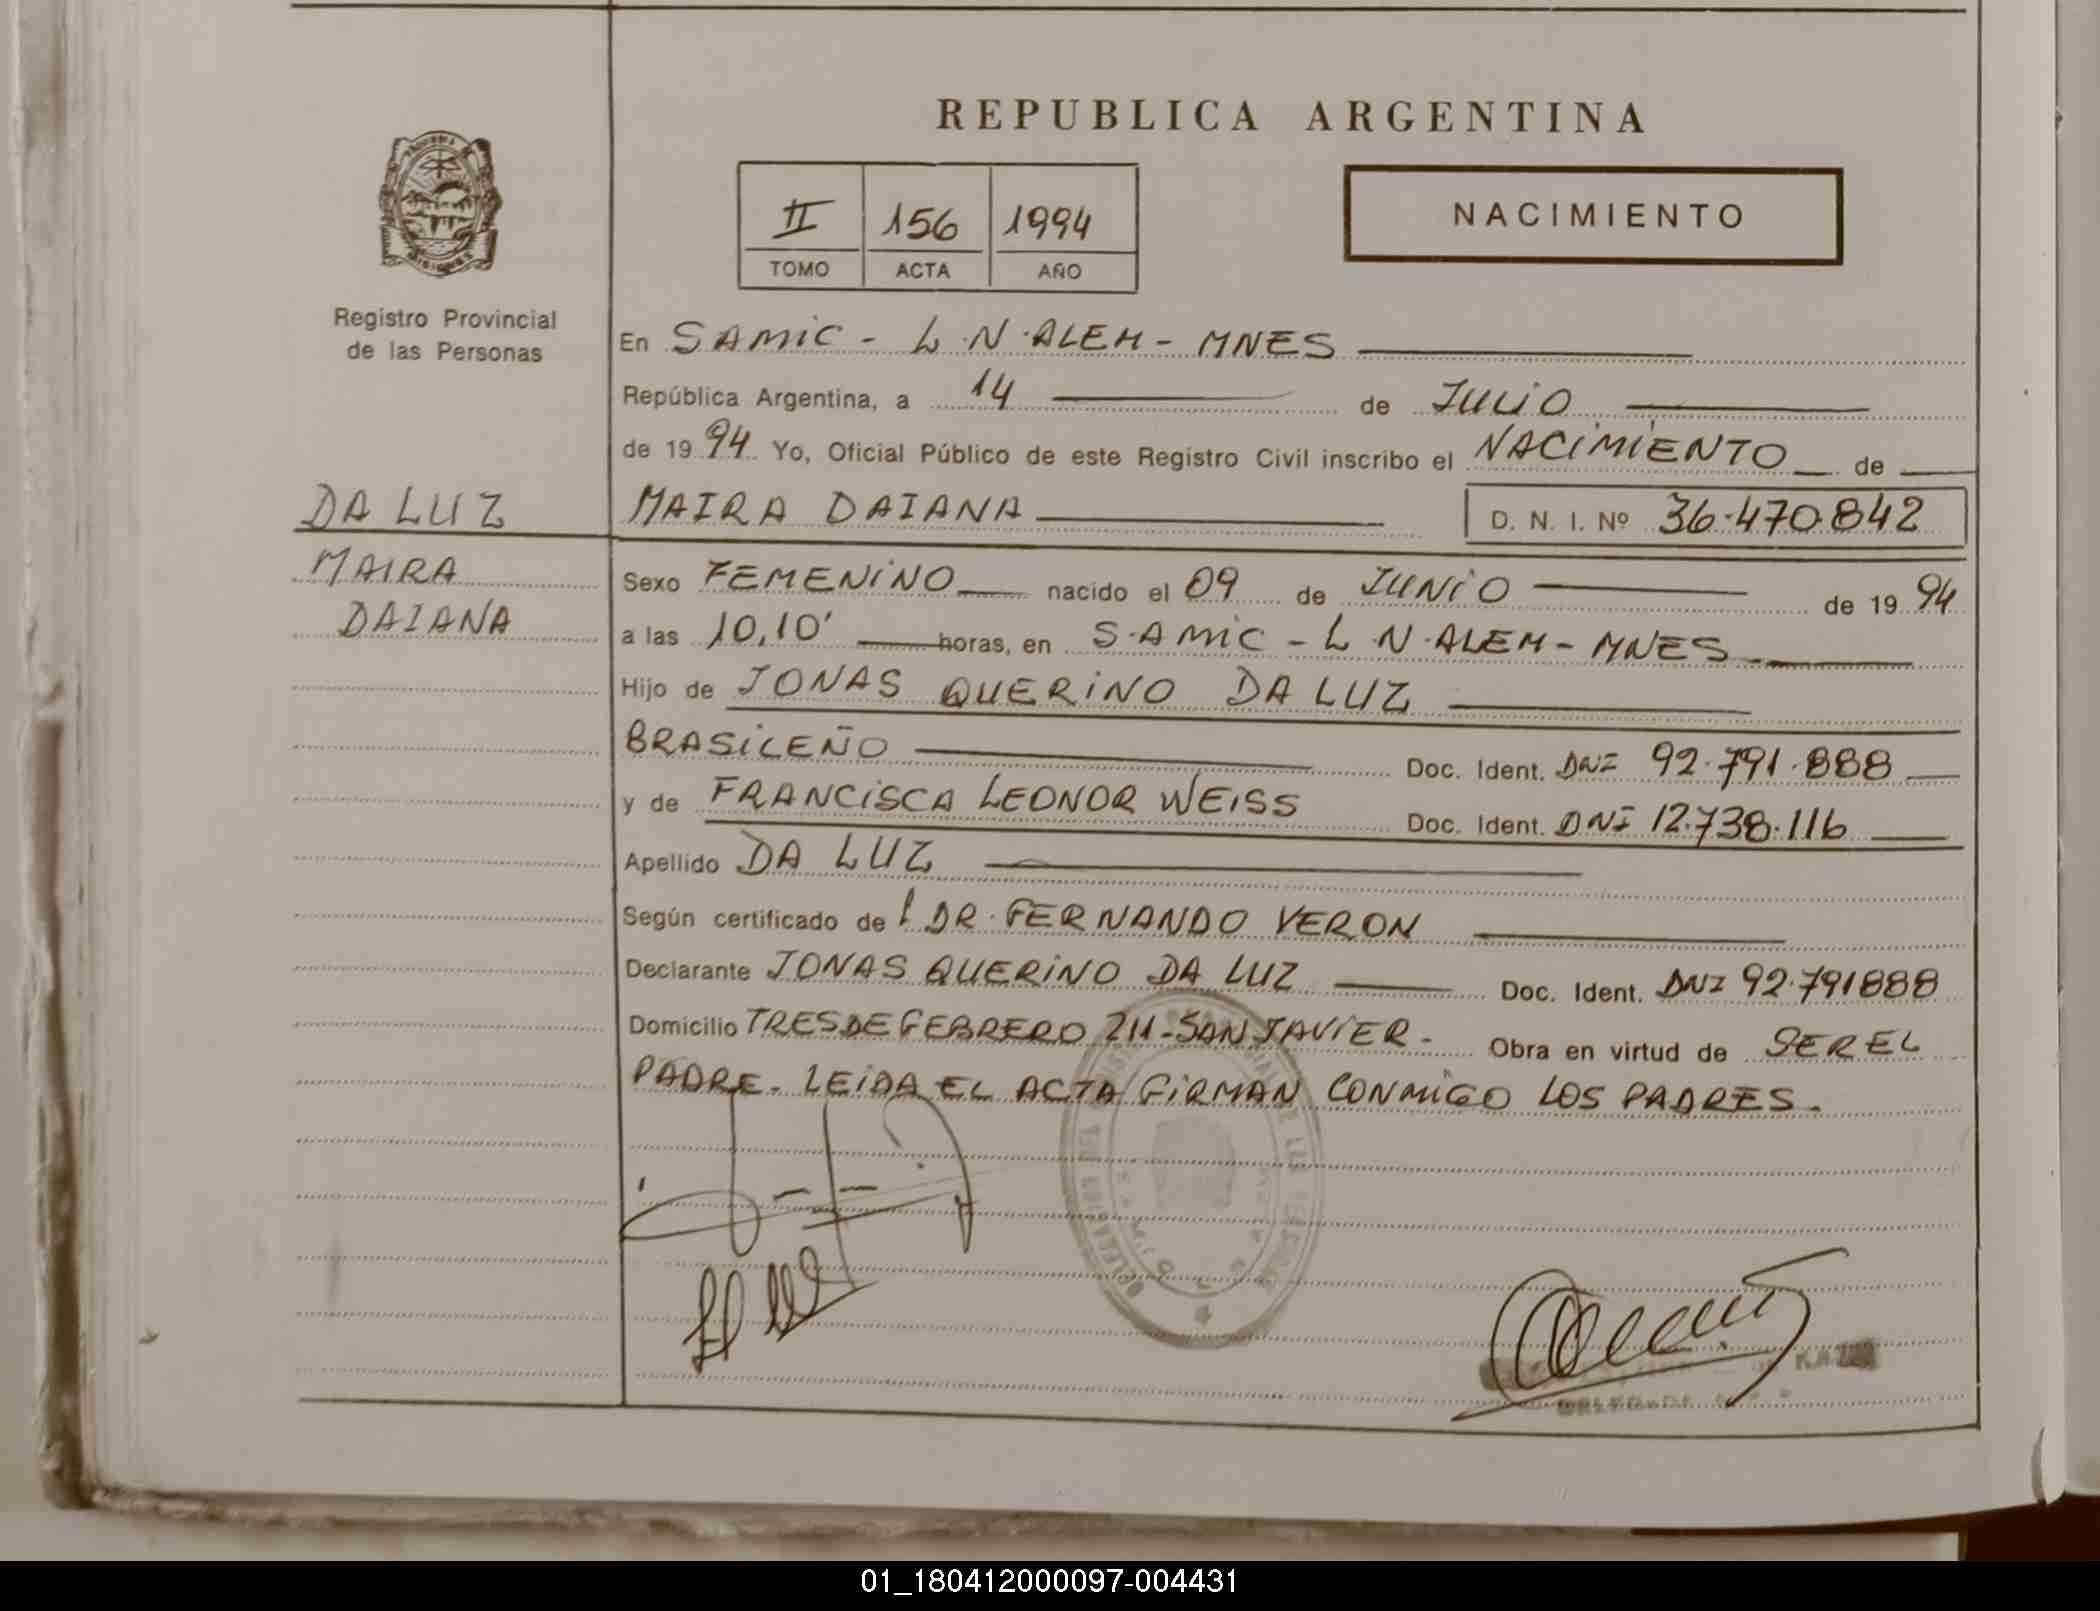 REPUBLICA ARGENTINA
II 156 1994
TOMO ACTA AÑO
NACIMIENTO
Registro Provincial
de las Personas
En SAMIC - L.N.ALEM - MNES
República Argentina, a 14 de JULIO
de 1994 Yo, Oficial Público de este Registro Civil inscribo el NACIMIENTO de
DA LUZ MAIRA DAIANA D. N. I. Nº 36.470.842
MAIRA
DAIANA
Sexo FEMENINO nacido el 09 de JUNIO de 1994
a las 10,10' horas, en S.AMIC - L.N.ALEM - MNES
Hijo de JONAS QUERINO DA LUZ
BRASILEÑO Doc. Ident. DNI 92.791.888
y de FRANCISCA LEONOR WEISS Doc. Ident. DNI 12.738.116
Apellido DA LUZ
Según certificado de DR. FERNANDO VERON
Declarante JONAS QUERINO DA LUZ Doc. Ident. DNI 92.791888
Domicilio TRES DE FEBRERO 211 - SAN JAVIER - Obra en virtud de SER EL
PADRE. LEIDA EL ACTA FIRMAN CONMIGO LOS PADRES.
01_180412000097-004431